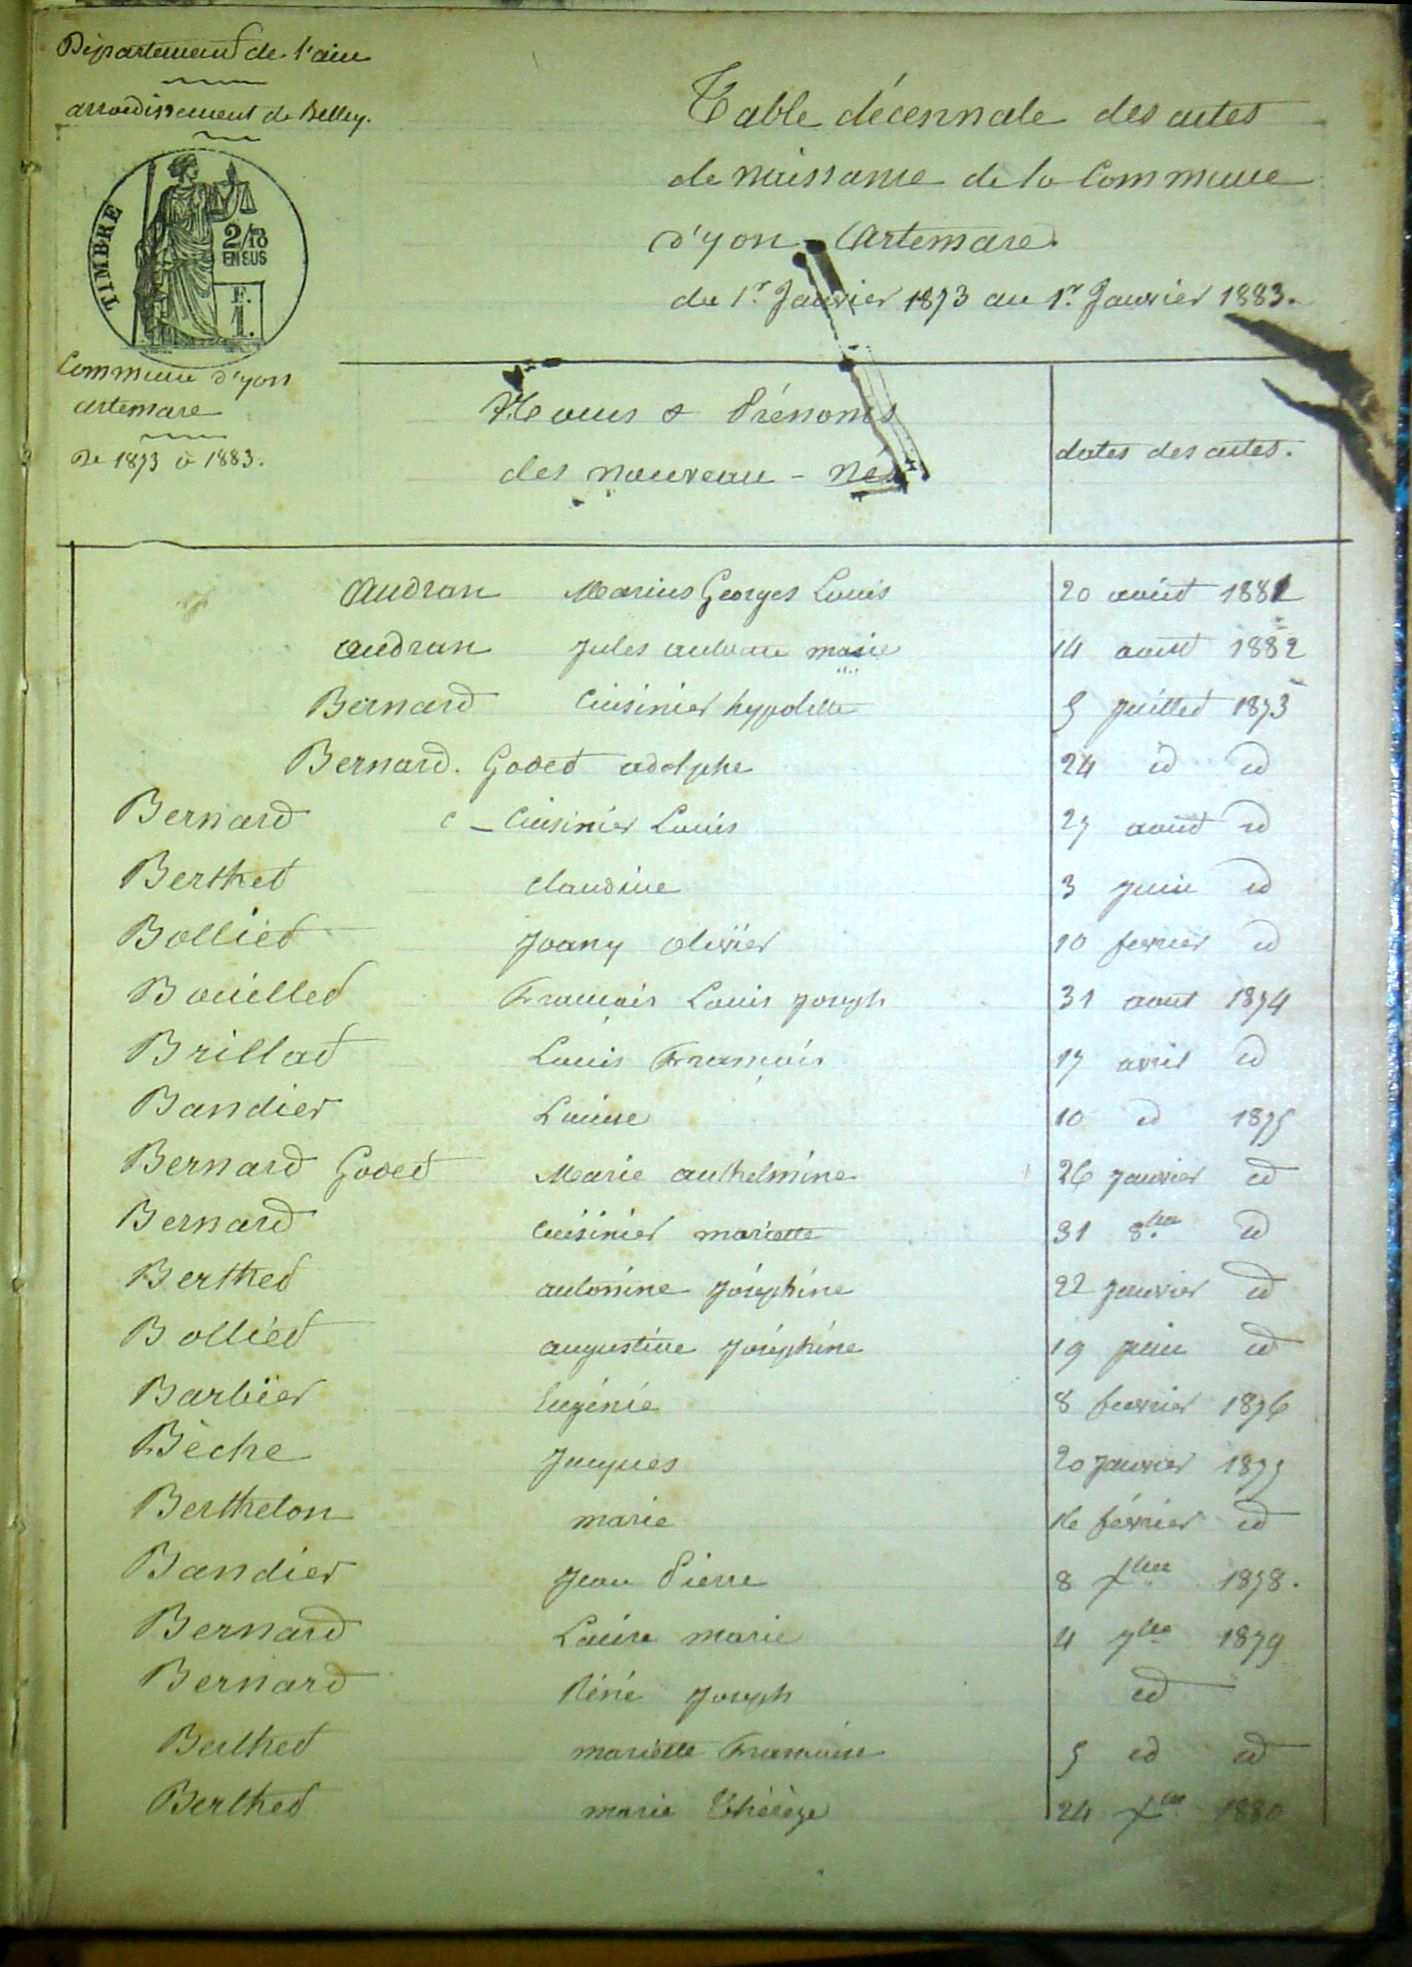 Département de l'ain
arrondissement de Belley.
TIMBRE
2/10
EN SUS
F.
1.
Commune d'yon
artemare
De 1873 à 1883.
Table décennale des actes
de naissance de la Commune
d'yon - Artemare.
du 1er Janvier 1873 au 1er Janvier 1883.
Noms & Prénoms
des nouveau - nés
dates des actes.
Audran Marius Georges Louis 20 août 1881
audran Jules marie 14 août 1882
Bernard Cuisinier hypolitte 5 Juillet 1873
Bernard. Godet adolphe 24 id id
Bernard C - Cuisinier Louis 27 août id
Berthet Claudine 3 Juin id
Bolliet Joany olivier 10 fevrier id
Bouillet François Louis Joseph 31 aout 1874
Brillat Louis François 17 avril id
Bandier Louise 10 id 1875
Bernard Godet Marie anthelmine 26 Janvier id
Bernard Cuisinier mariette 31 8bre id
Berthet antonine Joséphine 22 Janvier id
Bolliet augustine Joséphine 19 juin id
Barbier Eugénie 8 fevrier 1876
Bèche Jacques 20 Janvier 1877
Berthelon marie 16 février id
Bandier Jean Pierre 8 xbre 1878.
Bernard Louise marie 4 7bre 1879
Bernard Réné Joseph id
Berthet mariette Françoise 5 id id
Berthet marie Thérèze 24 xbre 1880